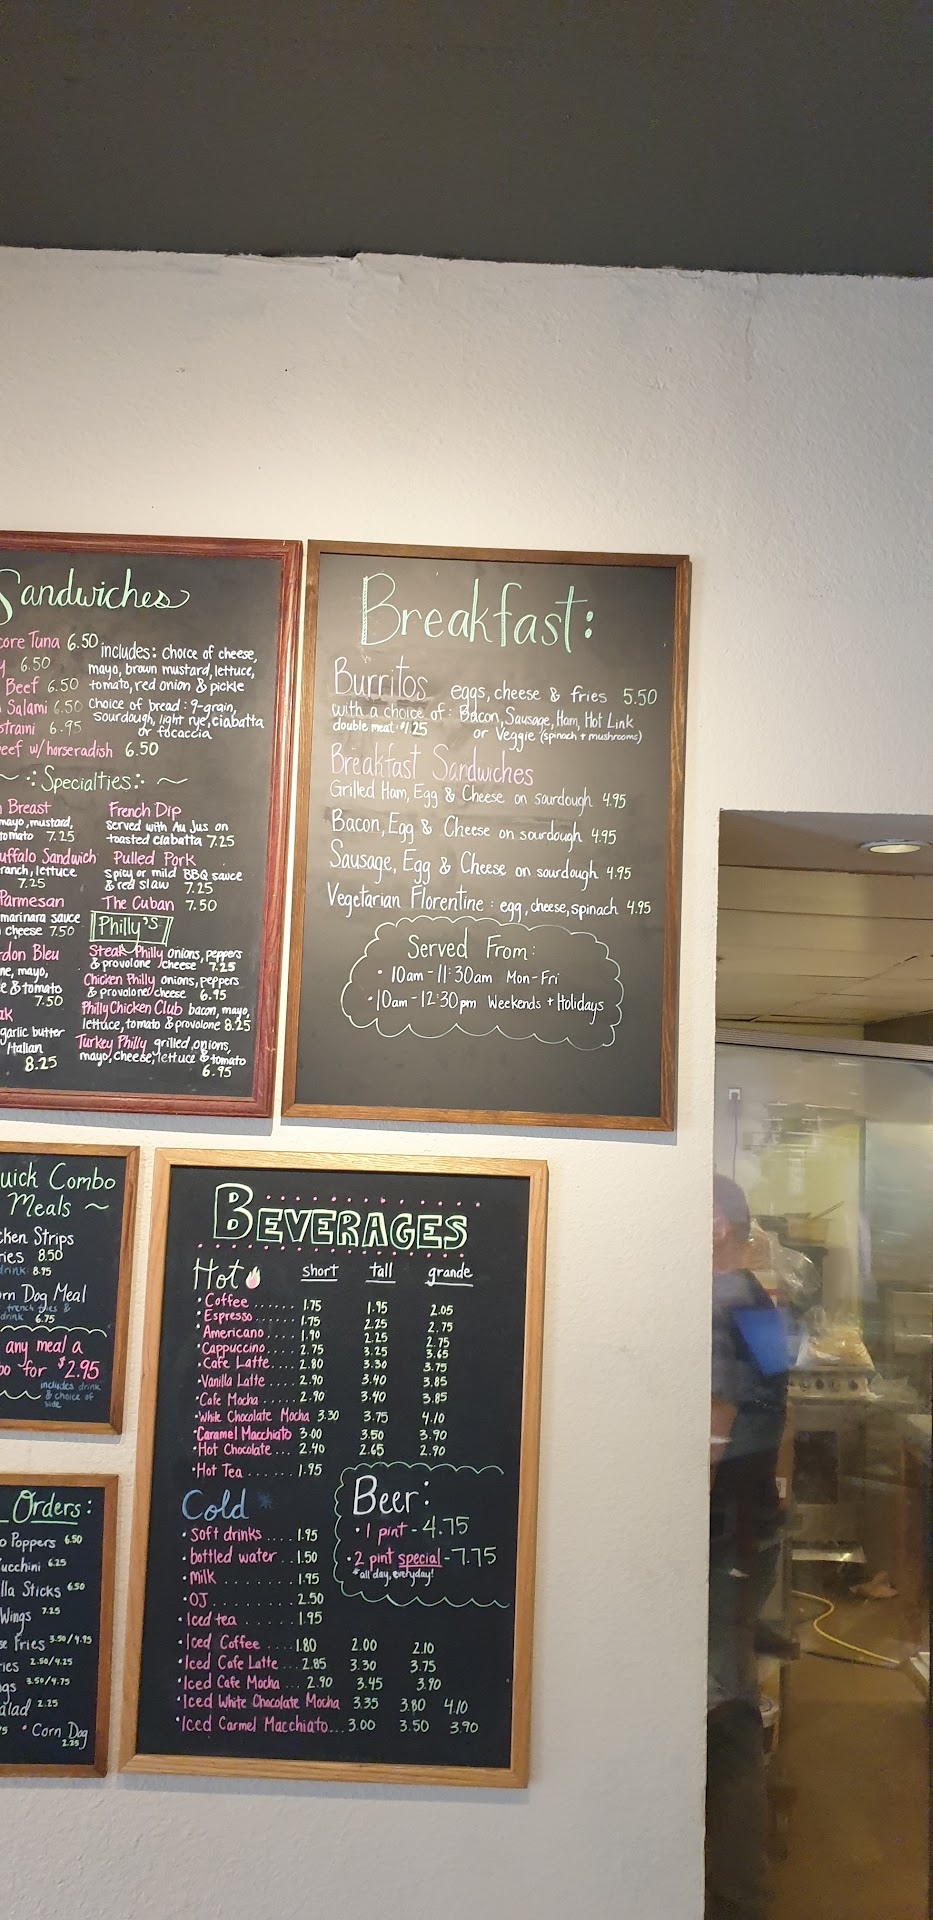 Sandwiches
Tuna 6.50
6.50
Beef 6.50
Salami 6.50
6.95
w/ horseradish 6.50
includes: choice of cheese,
mayo, brown mustard, lettuce,
tomato, red onion & pickle
Choice of bread: 9-grain,
sourdough, light rye, ciabatta
or focaccia
Specialties:
Breast
mayo, mustard,
tomato 7.25
Sandwich
ranch, lettuce
7.25
Parmesan
marinara sauce
cheese 7.50
Bleu
mayo,
& tomato
7.50
garlic butter
Italian
8.25
French Dip
served with Au Jus on
toasted ciabatta 7.25
Pulled Pork
Spicy or mild BBQ sauce
& red slaw 7.25
The Cuban 7.50
Philly's
Steak Philly onions, peppers
& provolone cheese 7.25
Chicken Philly onions, peppers
& provolone cheese 6.95
Philly Chicken Club bacon, mayo,
lettuce, tomato & provolone 8.25
Turkey Philly grilled onions,
mayo, cheese, lettuce & tomato
6.95
Breakfast:
Burritos eggs, cheese & fries 5.50
with a choice of: Bacon, Sausage, Ham, Hot Link
double meat +$1.25 or Veggie (spinach + mushrooms)
Breakfast Sandwiches
Grilled Ham, Egg & Cheese on sourdough 4.95
Bacon, Egg & Cheese on sourdough 4.95
Sausage, Egg & Cheese on sourdough 4.95
Vegetarian Florentine: egg, cheese, spinach 4.95
Served From:
• 10am-11:30am Mon-Fri
• 10am-12:30pm Weekends + Holidays
Combo
Meals
Strips
8.50
drink 8.75
Dog Meal
french fries &
drink 6.75
any meal a
for $2.95
includes drink
& choice of
side
Orders:
Poppers 6.50
6.25
Sticks 6.50
Wings 7.25
Fries 3.50/4.95
2.50/4.25
3.50/4.75
2.25
• Corn Dog
2.25
BEVERAGES
Hot short tall grande
• Coffee ...... 1.75 1.95 2.05
• Espresso ...... 1.75 2.25 2.75
• Americano .... 1.90 2.25 2.75
• Cappuccino .... 2.75 3.25 3.65
• Cafe Latte .... 2.80 3.30 3.75
• Vanilla Latte ... 2.90 3.40 3.85
• Cafe Mocha ..... 2.90 3.40 3.85
• White Chocolate Mocha 3.30 3.75 4.10
• Caramel Macchiato 3.00 3.50 3.90
• Hot Chocolate ... 2.40 2.65 2.90
• Hot Tea ...... 1.95
Cold
• soft drinks .... 1.95
• bottled water .. 1.50
• Milk ........ 1.95
• OJ ......... 2.50
• Iced tea ...... 1.95
• Iced Coffee .... 1.80 2.00 2.10
• Iced Cafe Latte ... 2.85 3.30 3.75
• Iced Cafe Mocha ... 2.90 3.45 3.90
• Iced White Chocolate Mocha 3.35 3.80 4.10
• Iced Carmel Macchiato... 3.00 3.50 3.90
Beer:
• 1 pint - 4.75
• 2 pint special - 7.75
*all day, everyday!